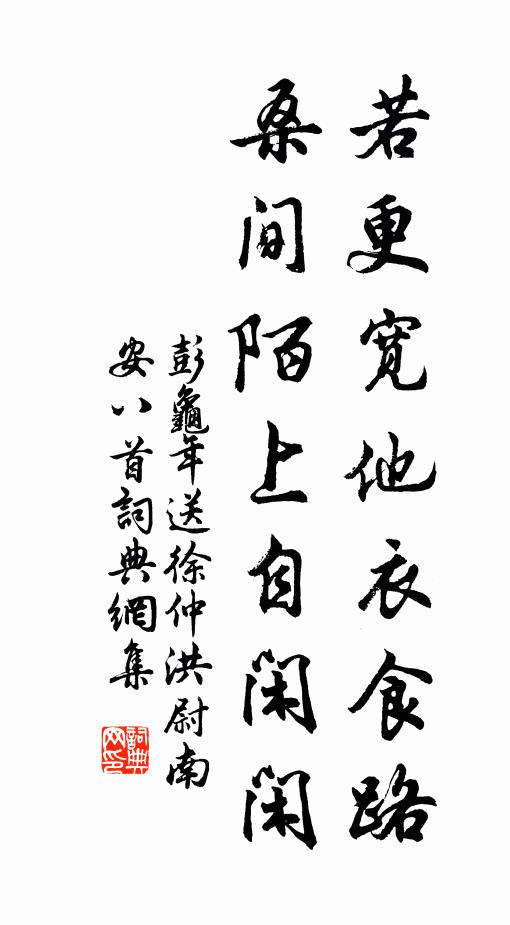 若更寬他衣食路
桑間陌上自閑閑
彭龜年送徐仲洪尉南
安八首詞典網集
詞典网印